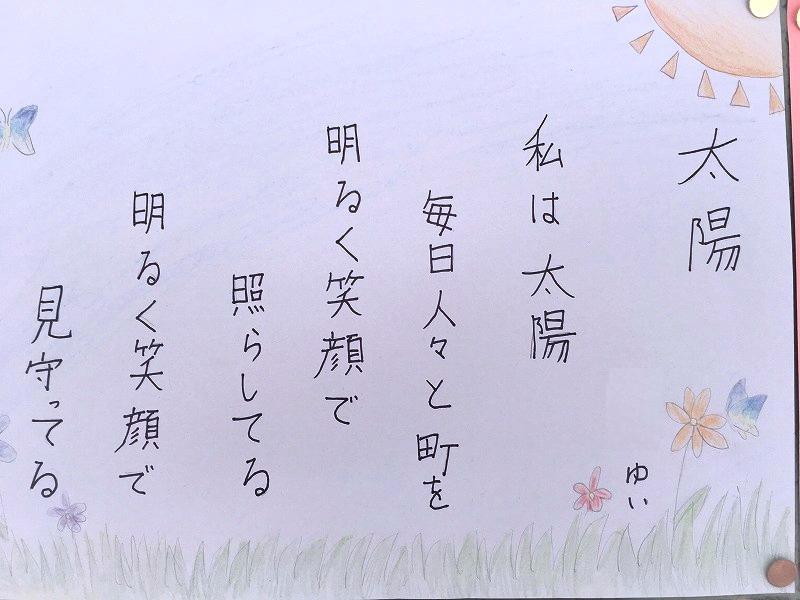 太陽
ゆい
私は太陽
毎日人々と町を
明るく笑顔で
照らしてる
明るく笑顔で
見守ってる